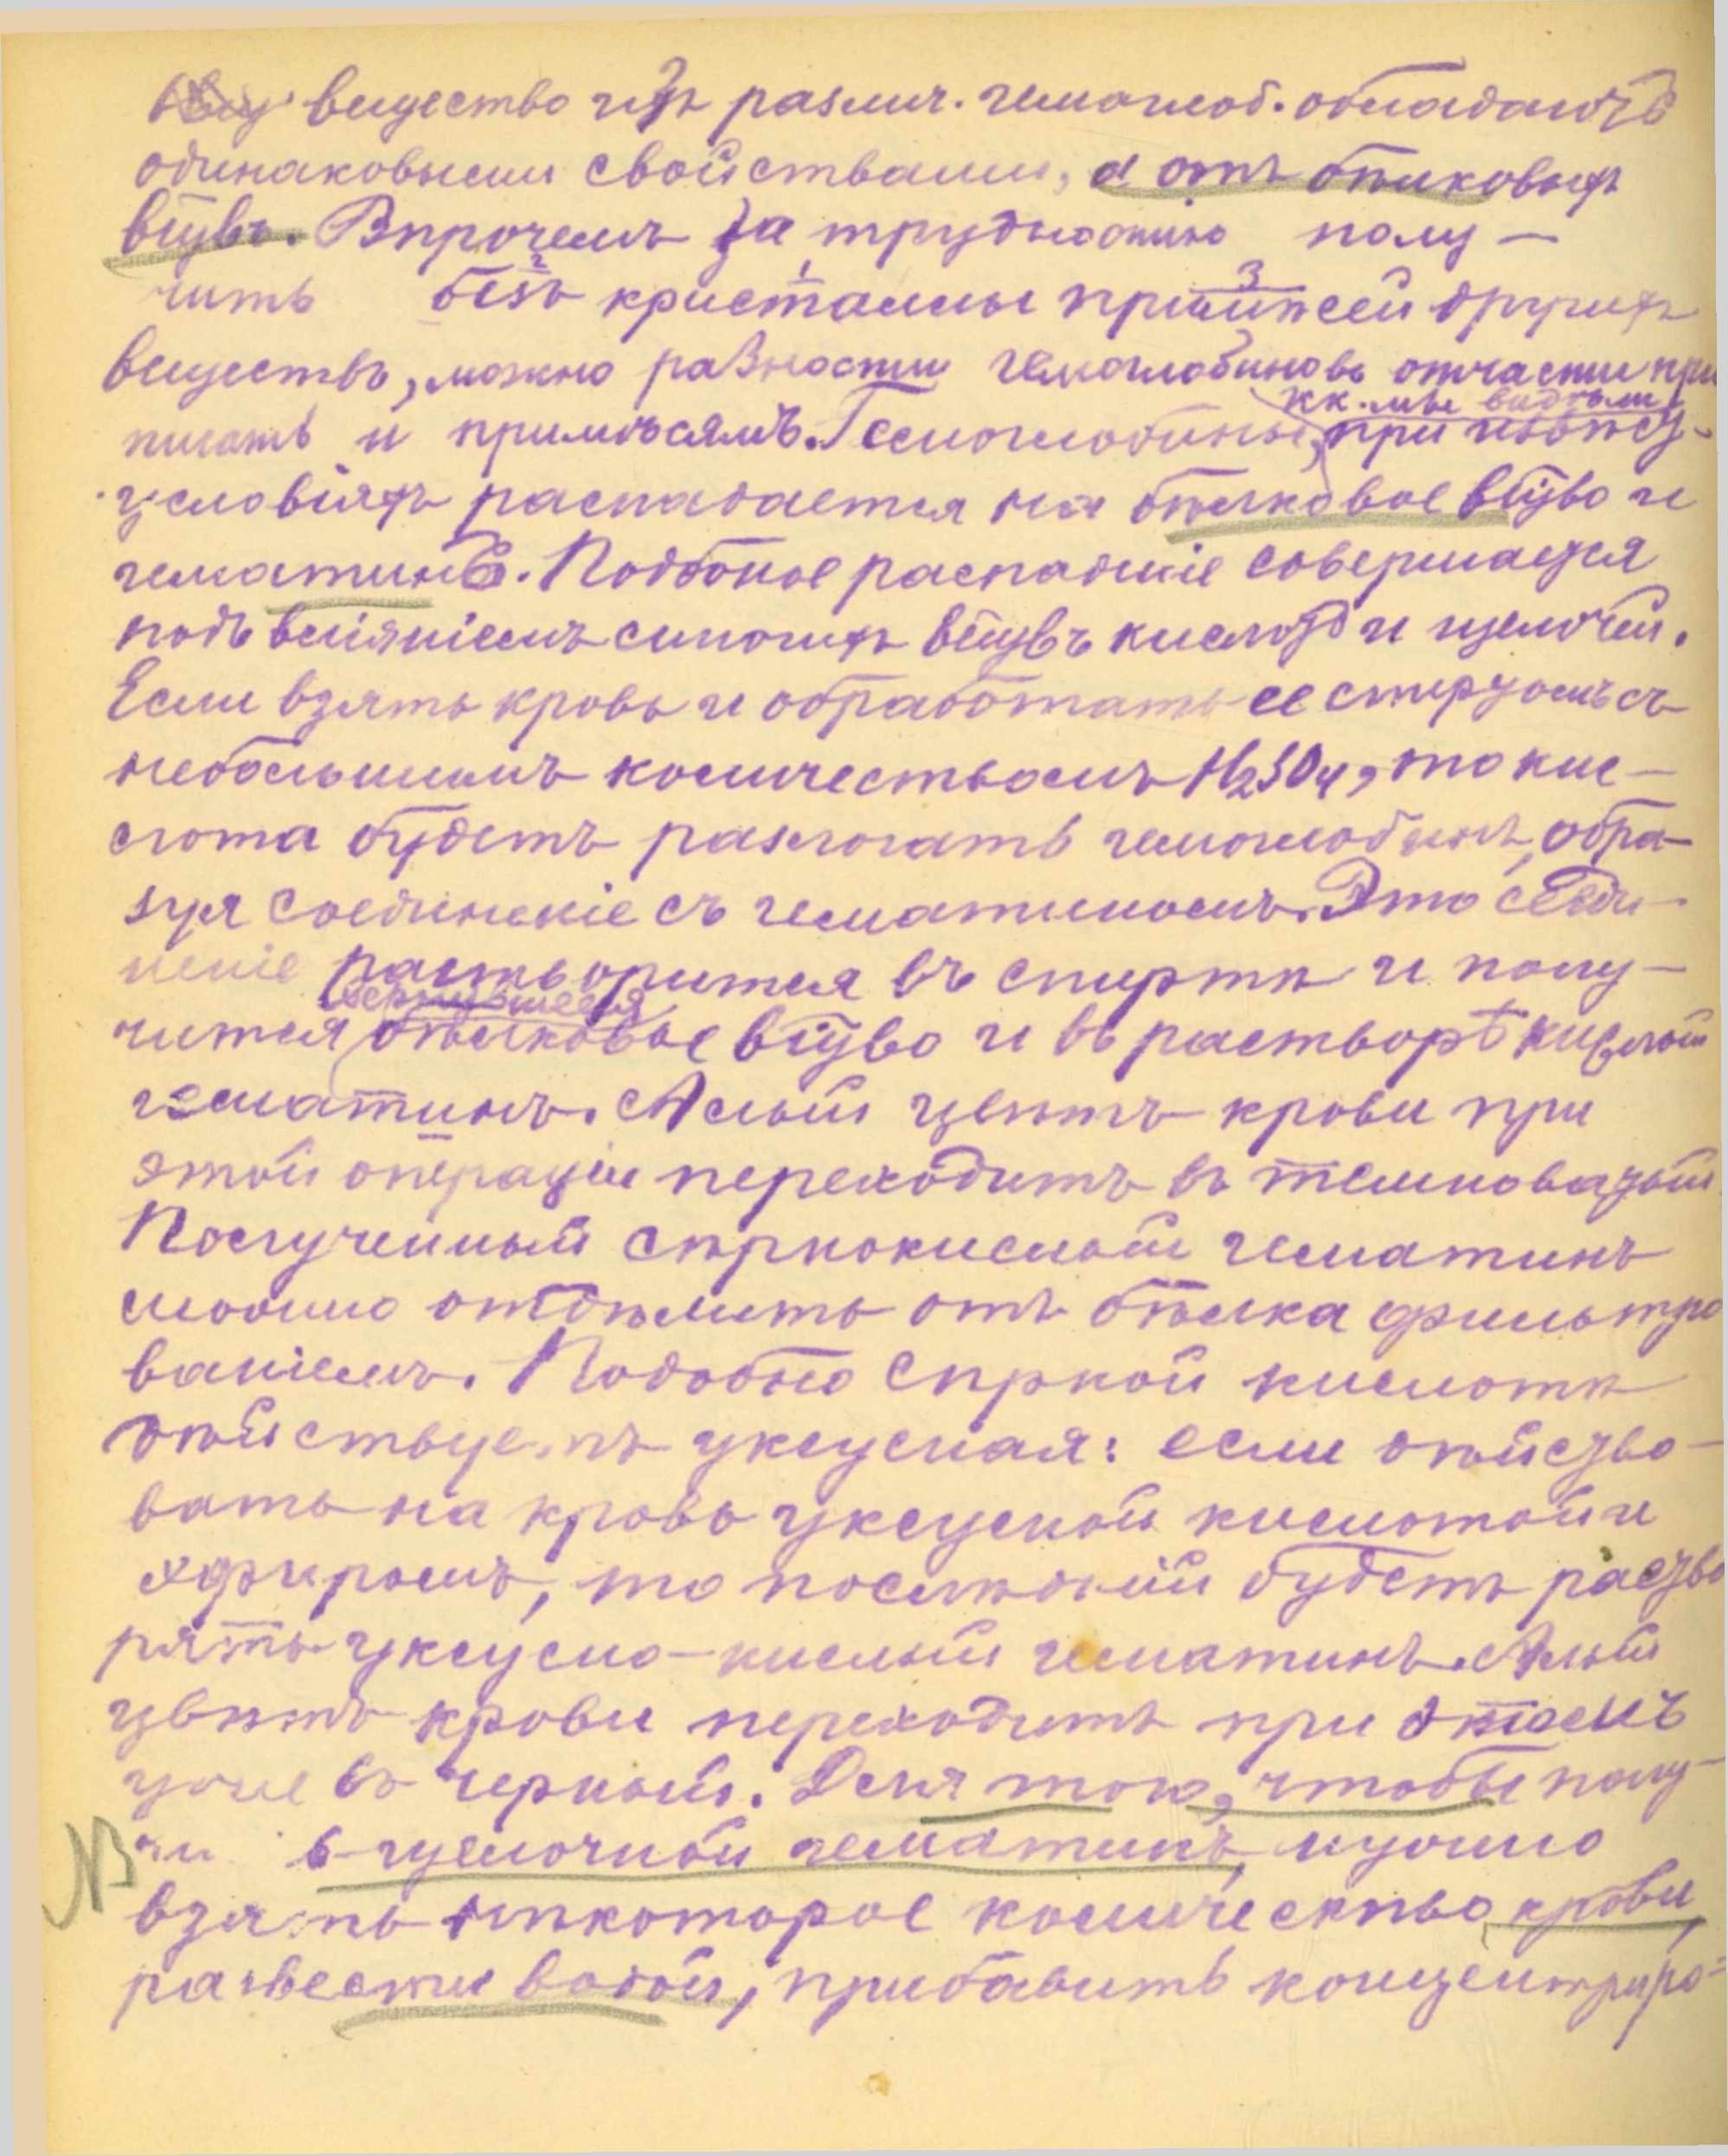 вещество изъ различ. гемоглоб. обладаютъ
одинаковыми свойствами, а отъ бѣлковыхъ
вещвъ. Впрочемъ за трудностію полу-
чить безъ кристаллы примѣсей другихъ
веществъ, можно разности гемоглобиновъ отчасти при
кк. мы видѣли
писать и примѣсямъ. Гемоглобинъ, при извѣст.
условіяхъ распадается на бѣлковое вещво и
гематинъ. Подобное распаденіе совершается
подъ вліяніемъ сильныхъ вещвъ кислотъ и щелочей.
Если взять кровь и обработать ее спиртомъ съ
небольшимъ количествомъ H2SO4, то кис-
лота будетъ разлогать гемоглобинъ, обра-
зуя соединеніе съ гематиномъ. Это соеди-
неніе растворится въ спиртѣ и полу-
свернувшееся
чится бѣлковое вещво и въ растворѣ кислый
гематинъ. Алый цвѣтъ крови при
этой операціи переходитъ въ темноватый
Полученный сѣрнокислый гематинъ
можно отдѣлить отъ бѣлка фильтро
ваніемъ. Подобно сѣрной кислотѣ
дѣйствуетъ уксусная: если дѣйство-
вать на кровь уксусной кислотой и
эфиромъ, то послѣдній будетъ раство
рять уксусно-кислый гематинъ. Алый
цвѣтъ крови переходитъ при этомъ
уже въ черный. Для того, чтобы полу-
NB чи ь щелочной гематинъ, нужно
взять нѣкоторое количество крови,
развести водой, прибавить концентриро-